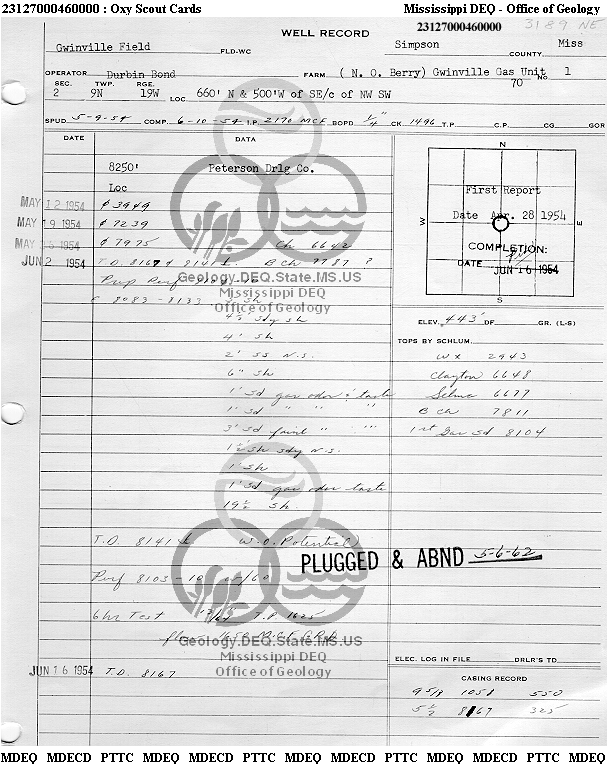 23127000460000 : Oxy Scout Cards Mississippi DEQ - Office of Geology
23127000460000 3189 NE
WELL RECORD
Gwinville Field FLD-WC Simpson COUNTY, Miss
OPERATOR Durbin Bond FARM ( N. O. Berry) Gwinville Gas Unit 70 No. 1
SEC. TWP. RGE.
2 9N 19W LOC 660' N & 500'W of SE/c of NW SW
SPUD 5-9-54 COMP. 6-10-54 I.P. 2170 MCF BOPD 1/4" CK 1496 T.P. C.P. CG. GOR
DATE DATA
8250' Peterson Drlg Co.
Loc
MAY 12 1954 3949
MAY 19 1954 7239
MAY 26 1954 7975 Ck 6642
JUN 2 1954 T.D. 8167 8141 B Ck 7787 ?
Geology.DEQ.State.MS.US
Mississippi DEQ
Office of Geology
C 8083-8133 sh
4 1/2' sdy sh
4' sh
2' ss N.S.
6" sh
1' sd gas odor & taste
1' sd " " "
3' sd faint " "
1 1/2' sh sdy N.S.
1' sh
1' sd gas odor taste
19 1/2' sh.
T.D. 8141 W.O. Potential
Perf 8103-10
6 hr Test 13/64 T.P. 1625
Geology.DEQ.State.MS.US
Mississippi DEQ
Office of Geology
JUN 16 1954 T.D. 8167
PLUGGED & ABND 5-6-62
N
W E
S
First Report
Date Apr. 28 1954
COMPLETION:
DATE JUN 16 1954
ELEV. 443' DF. GR. (L-S)
TOPS BY SCHLUM.
Wx 2943
Clayton 6648
Selma 6677
B Ck 7811
1st Gas Sd 8104
ELEC. LOG IN FILE DRLR'S TD.
CASING RECORD
9 5/8 1051 550
5 1/2 8167 325
MDEQ MDECD PTTC MDEQ MDECD PTTC MDEQ MDECD PTTC MDEQ MDECD PTTC MDEQ